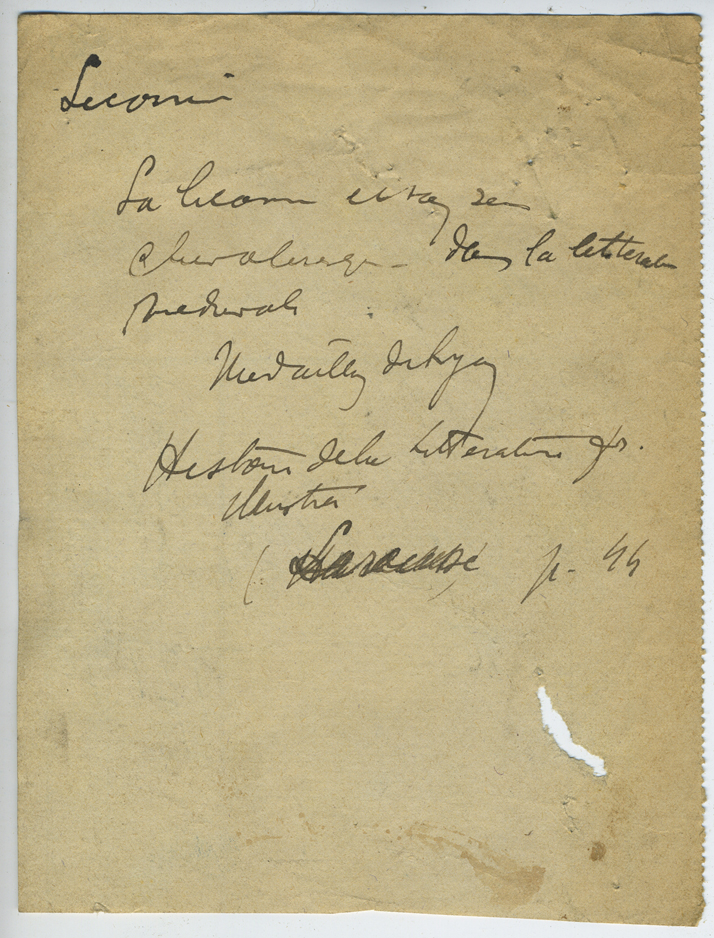 Licorne
La licorne
chevaleresque dans la littérature
médiévale
Médailles
Histoire de la Littérature fr.
illustrée
(Larousse) p. 44